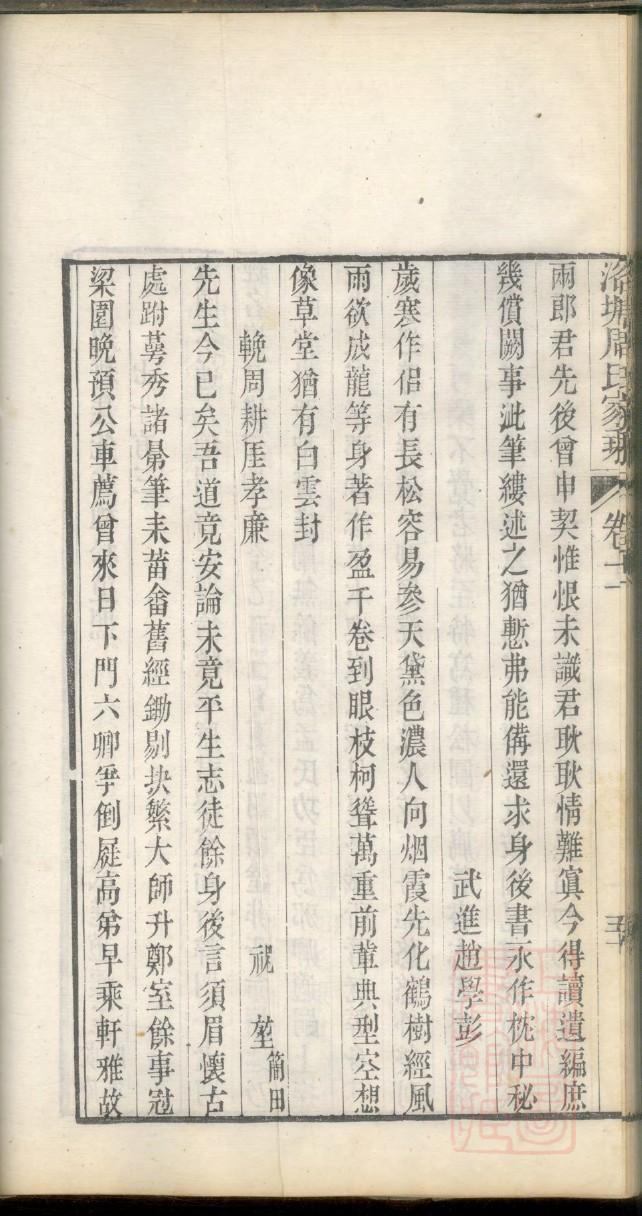 洛塘周氏家乘
卷十二
兩郎君先後曾申契惟恨未識君耿耿情難寘今得讀遺編庶
幾償闕事泚筆縷述之猶慙弗能備還求身後書永作枕中秘
武進趙學彭
歲寒作侶有長松容易參天黛色濃人向烟霞先化鶴樹經風
雨欲成龍等身著作盈千卷到眼枝柯聳萬重前軰典型空想
像草堂猶有白雲封
輓周耕厓孝廉
祝堃簡田
先生今已矣吾道竟安論未竟平生志徒餘身後言須眉懷古
處跗萼秀諸昆筆耒菑畬舊經鋤剔抉繁大師升鄭室餘事冠
梁園晚預公車薦曾來日下門六卿爭倒屣高弟早乘軒雅故